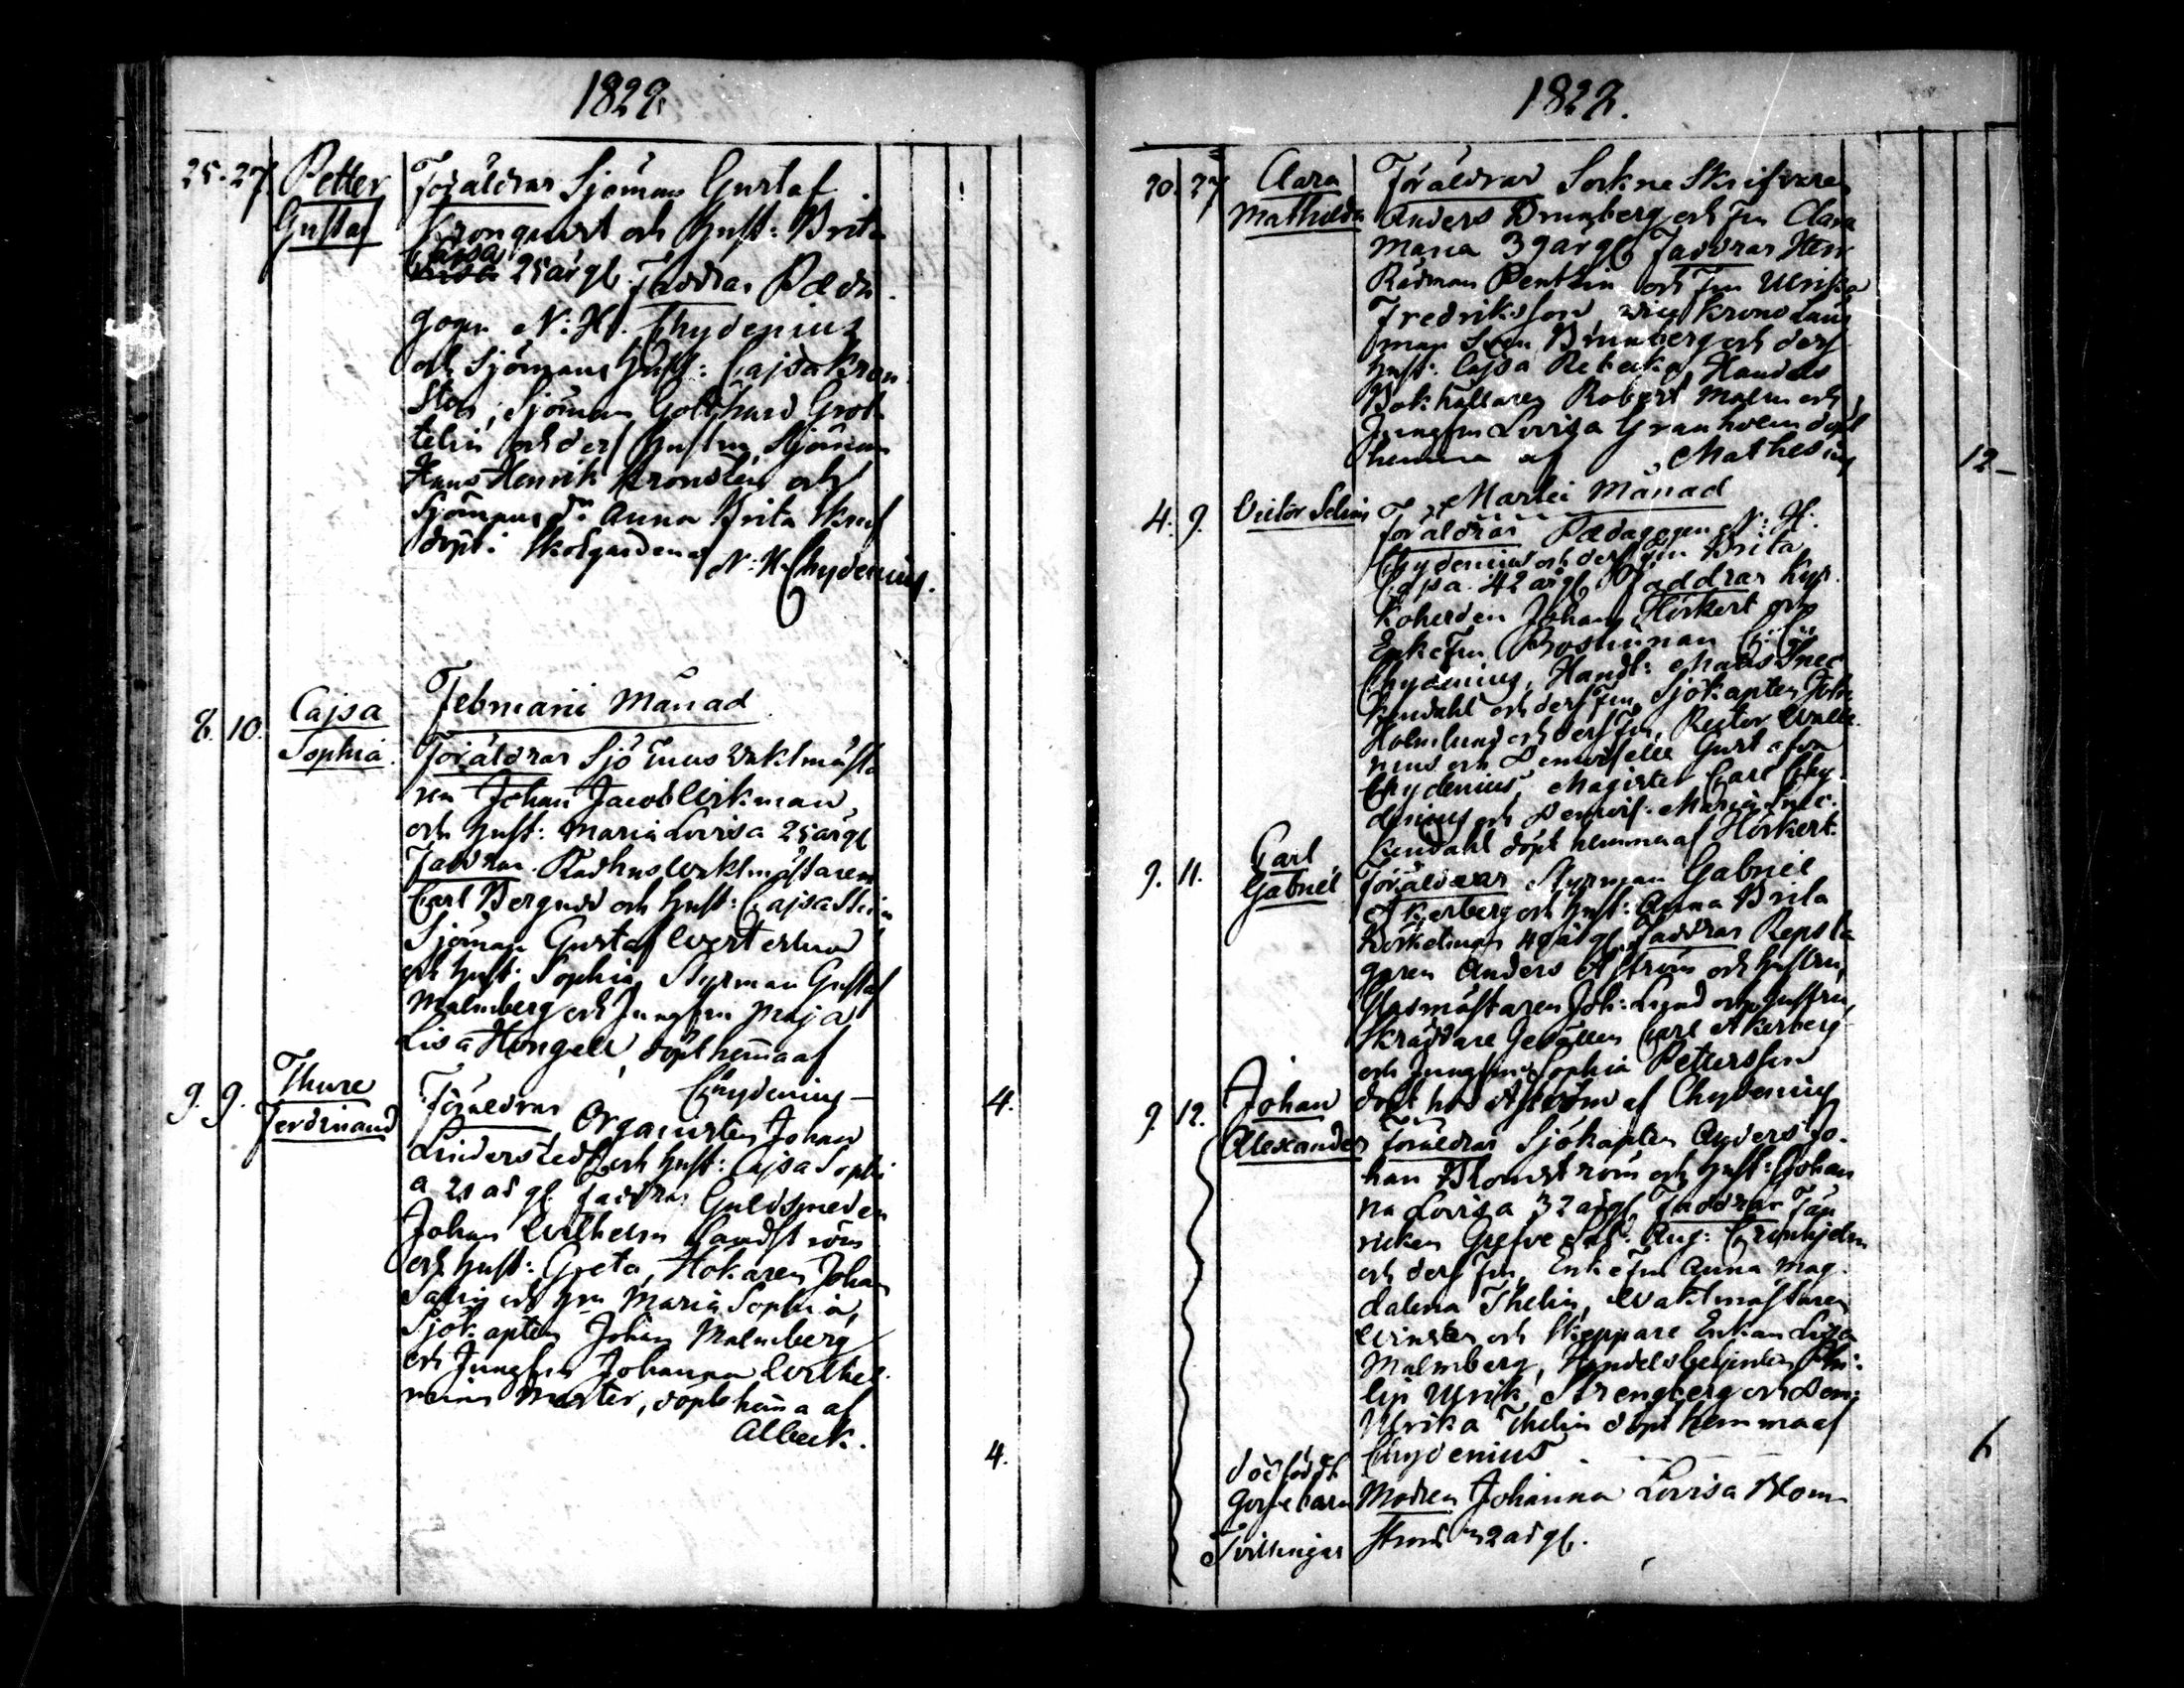 1822.
25. 27. Petter Föräldrar Sjöman Gustaf
Gustaf Kronqwist och Hust: Brita
Cajsa 25 år gl. Faddrar Pæda
gogen N: H. Chydenius
och Sjömans Hust: Cajsa Kron
Sten, Sjöman Gotthard Grot
telin och dess Hustru, Sjöman
Hans Henrik Kronsten och
Sjömans Anna Brita
döpt i Skolgården af
N: H. Chydenius.
Februarii Månad
8. 10. Cajsa
Sophia. Föräldrar Sjö Tulls Vaktmästa
ren Johan Jacob Wikman
och Hust: Maria Lovisa 25 år gl
Faddrar Rådhus Vaktmästaren
Carl Bergudd och Hust: Cajsa Stina
Sjöman Gustaf Westerlund
och Hust: Sophia, Styrman Gustaf
Malmberg och Jungfru Maja
Lisa Hongell, döpt hemma af
Chydenius 4.
9. 9. Thure
Ferdinand Föräldrar Organisten Johan
Linderstedt och Hust: Cajsa Sophi
a 21 år gl. faddrar Guldsmeden
Johan Wilhelm Sandström
och Hust: Greta, Hökaren Johan
och Hru Maria Sophia,
Sjökapten Johan Malmberg
och Jungfru Johanna Wilhel
mina, döpt hema af
Alleuk. 4.
1822.
20. 27 Clara Föräldrar Sockne Skrifvaren
Mathilda Anders Brunberg och Fru Clara
Maria 39 år gl. Faddrar Herr
Rådman Pentzin och Fru Ulrika
Fredriksson, Krono Läns
man Sven Brunberg och dess
Hust: Cajsa Rebecka, Handels
Bokhållaren Robert Malm och
Jungfru Lovisa Granholm döpt
hemma af Mathesius 12-
Martii Månad
4. 9. Victor Selim Föräldrar Pædagogen N: H.
Chydenius och dess Fru Brita
Cajsa 42 år gl. Faddrar Kyr
koherden Johan Hörkert och
Enke Fru
Chydenius, Handl: Mats Snec
kendahl och dess Fru, Sjökapten Joh:
Holmlund och dess Fru, Rector Walle
nius och Demoiselle Gustafva
Chydenius, Magister Carl Chy
denius och Demois. Maria Snec.
kendahl döpt hemma af Hörkert.
9. 11. Carl
Gabriel Föräldrar Styrman Gabriel
Åkerberg och Hust: Anna Brita
40 år gl. Faddrar Repsla
garen Anders Åström och Hustru,
Glasmästaren Joh: Lund och Hustru,
Skräddare Gesällen Carl Åkerberg
och Jungfru Sophia Pettersson
döpt hos Åström af Chydenius
9. 12. Johan
Alexander Föräldrar Sjökapten Anders Jo
han Blomström och Hust: Johan
na Lovisa 32 år gl. Faddrar Fän
ricken Grefve Aug: Cronhjelm
och dess Fru, Enke Fru Anna Mag
dalena Thelin, Waktmästaren
Winsten och Skeppare Enkan Lisa
Malmberg, Handelsbetjenten Phi
lip Ulrik Strengberg och Dem:
Ulrika Thelin döpt hemma af
Chydenius 6
dödfödt
gosse barn Modren Johanna Lovisa Blom
Tvillingar ström 32 år gl.